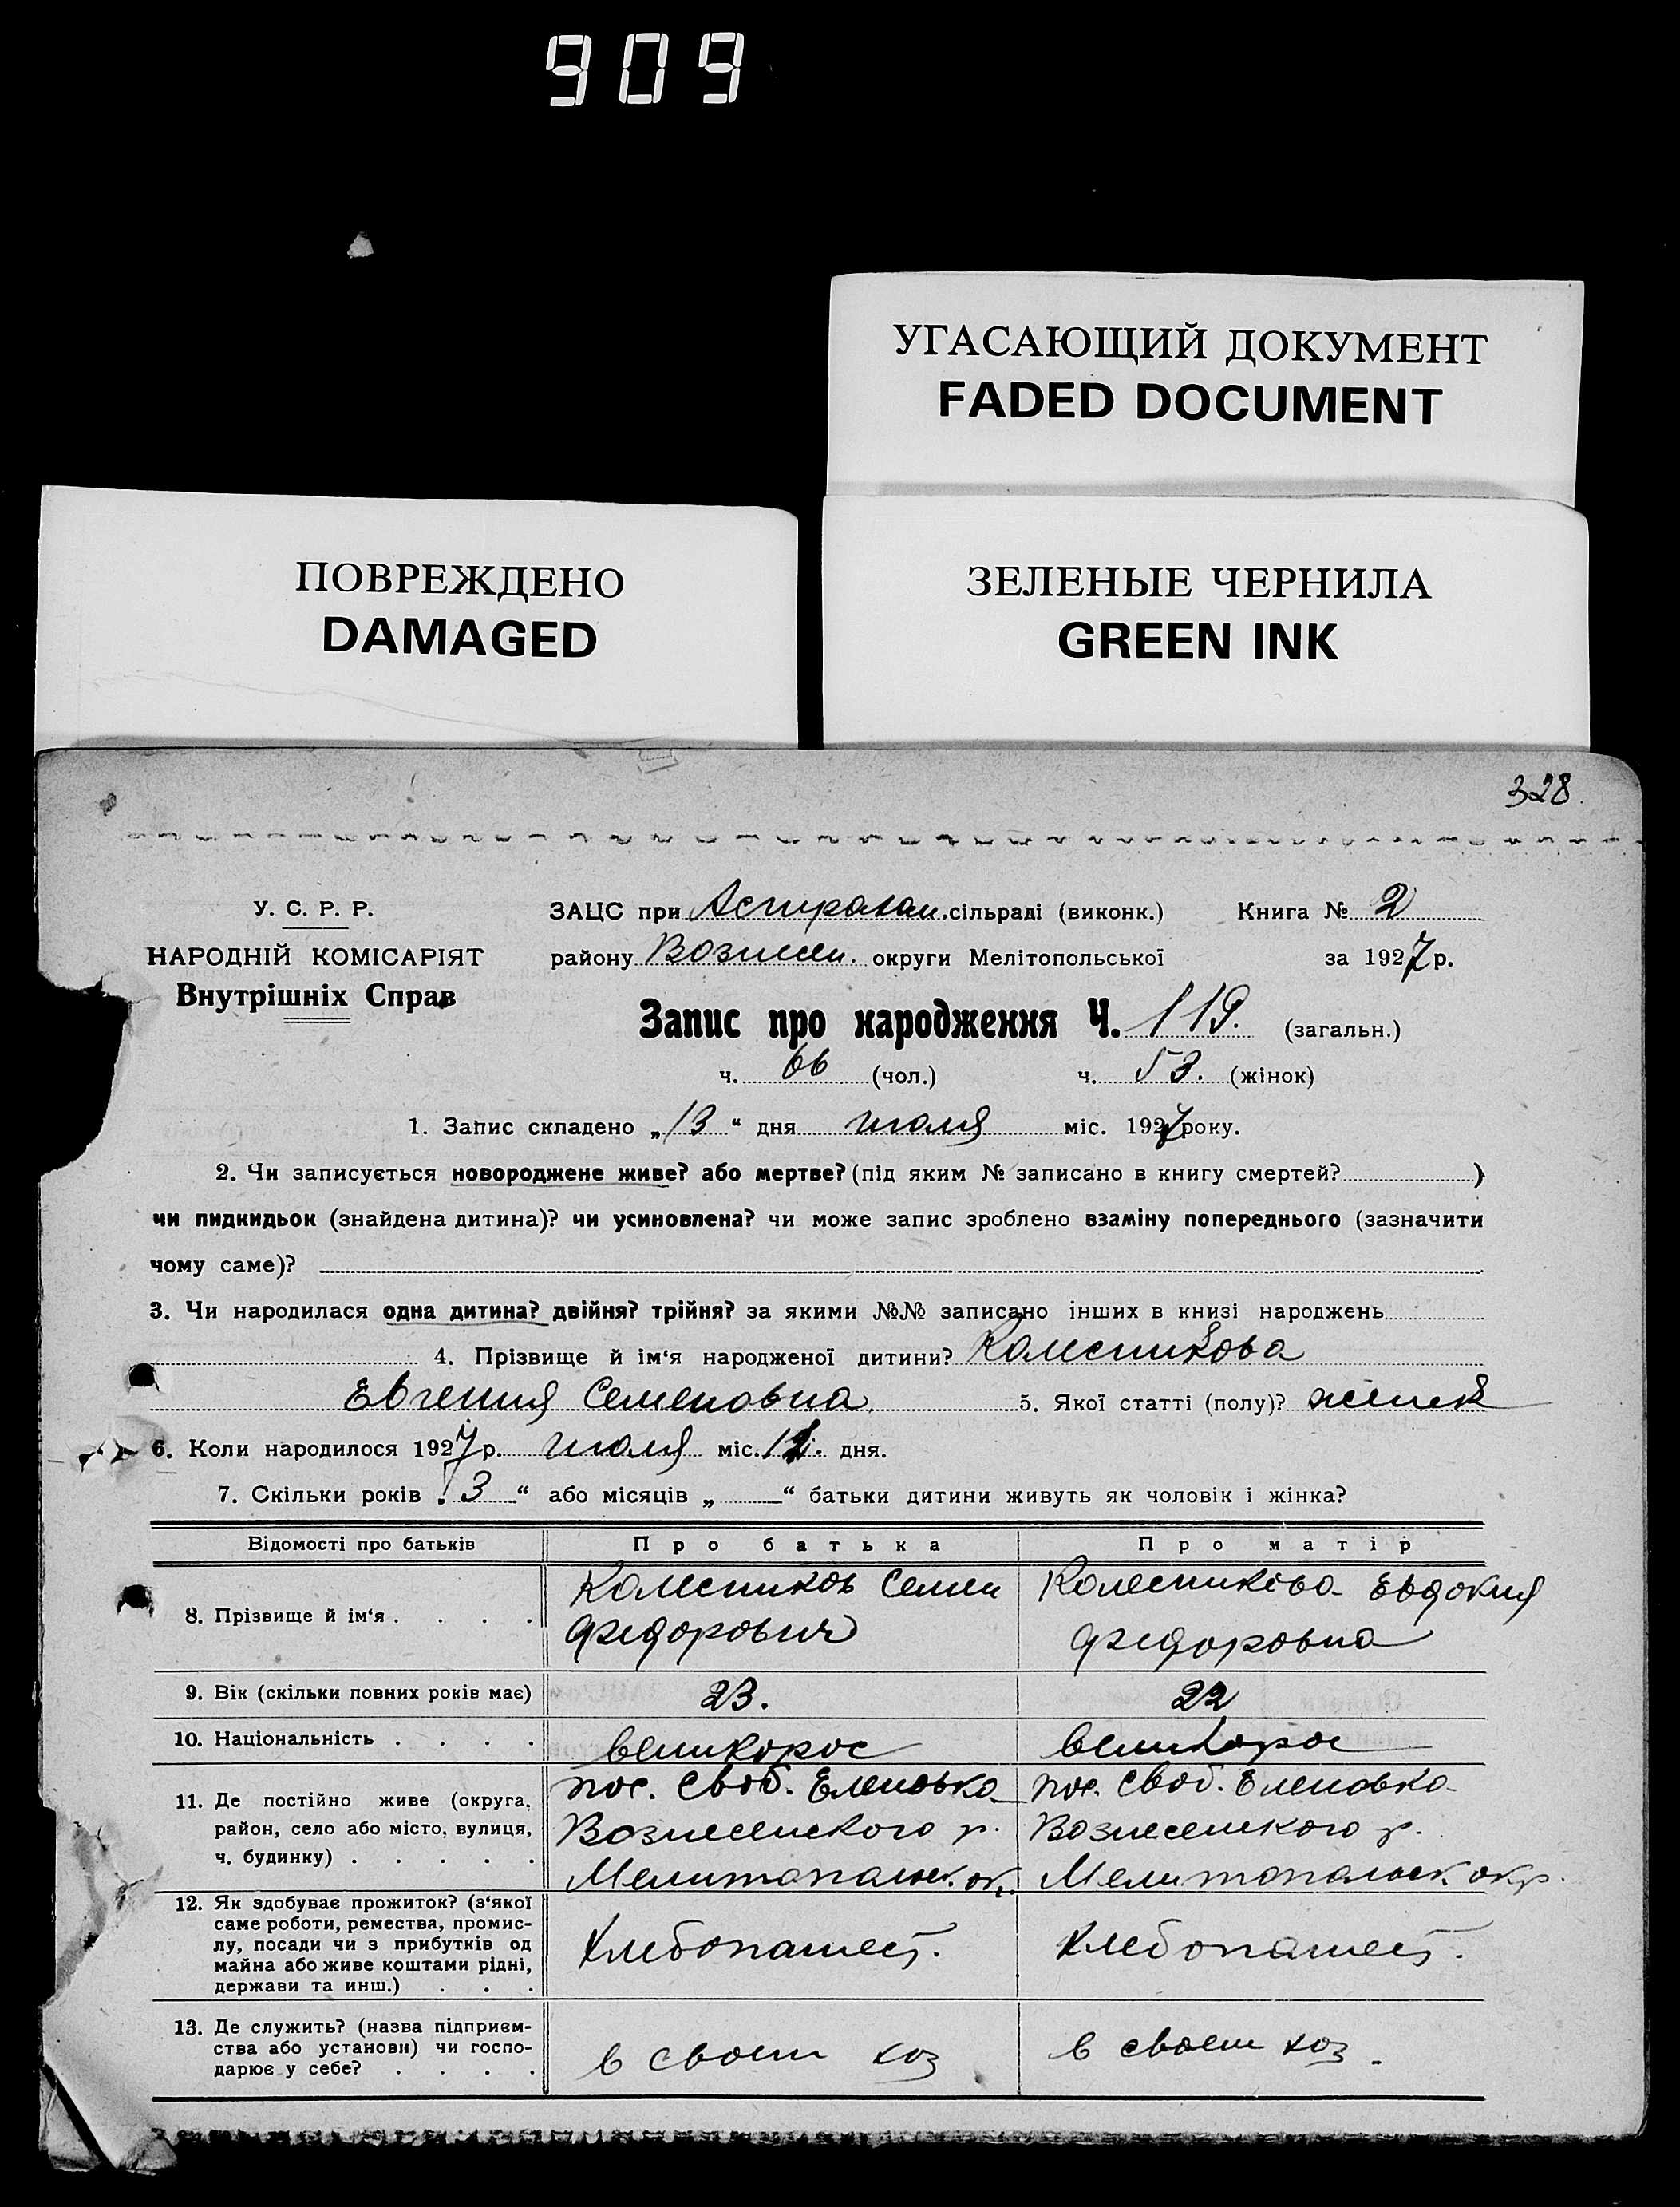 909
УГАСАЮЩИЙ ДОКУМЕНТ
FADED DOCUMENT
ПОВРЕЖДЕНО
DAMAGED
ЗЕЛЕНЫЕ ЧЕРНИЛА
GREEN INK
328
У. С. Р. Р.
НАРОДНІЙ КОМІСАРІЯТ
Внутрішніх Справ
ЗАЦС при Астрахан. сільраді (виконк.) Книга № 2
району Вознесен. округи Мелітопольської за 1927 р.
Запис про народження Ч. 119. (загальн.)
ч. 66 (чол.) ч. 53. (жінок)
1. Запис складено „13“ дня июля міс. 1927 року.
2. Чи записується новороджене живе? або мертве? (під яким № записано в книгу смертей? )
чи пидкидьок (знайдена дитина)? чи усиновлена? чи може запис зроблено взаміну попереднього (зазначити
чому саме)?
3. Чи народилася одна дитина? двійня? трійня? за якими №№ записано інших в книзі народжень
4. Прізвище й ім‘я народженої дитини? Колесникова
Евгения Семеновна 5. Якої статті (полу)? женск
6. Коли народилося 1927 р. июля міс. 12. дня.
7. Скільки років „3“ або місяців „ “ батьки дитини живуть як чоловік і жінка?
Відомості про батьків Про батька Про матір
8. Прізвище й ім‘я . . . . Колесников Семен Федорович Колесникова Евдокия Федоровна
9. Вік (скільки повних років має) 23. 22
10. Національність . . . . великорос великорос
11. Де постійно живе (округа, район, село або місто, вулиця, ч. будинку) . . . . . пос. Своб. Еленовка Вознесенского р. Мелитопольск. ок. пос. Своб. Еленовка Вознесенского р. Мелитопольск. окр.
12. Як здобуває прожиток? (з‘якої саме роботи, ремества, промислу, посади чи з прибутків од майна або живе коштами рідні, держави та инш.) . . . Хлебопашест. Хлебопашест.
13. Де служить? (назва підприємства або установи) чи господарює у себе? . . . . в своем хоз в своем хоз.